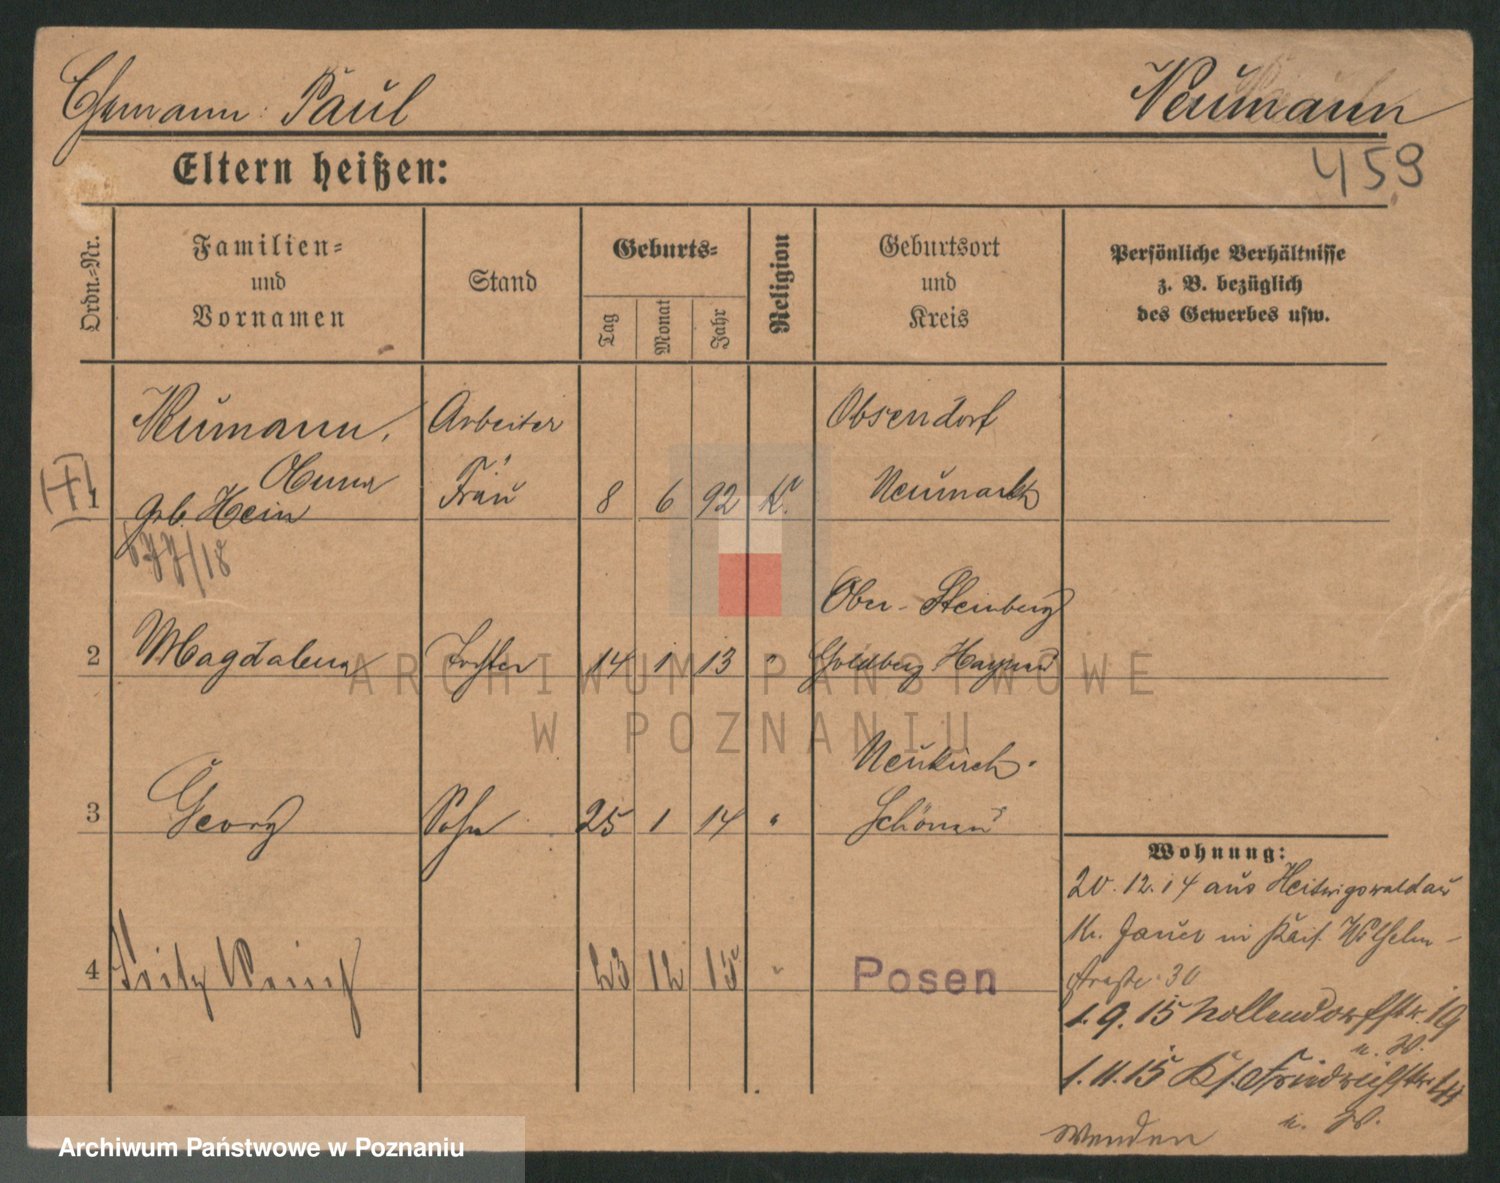 Ehemann: Paul
Neumann
459
Eltern heißen:
Ordn.-Nr.
Familien-
und
Vornamen
Stand
Geburts-
Tag
Monat
Jahr
Religion
Geburtsort
und
Kreis
Persönliche Verhältnisse
z. B. bezüglich
des Gewerbes usw.
Neumann, Arbeiter Obsendorf
Anna Frau Neumarkt
1 geb. Hein 8 6 92 K.
577/18
Ober-Steinberg
2 Magdalena Tochter 14 1 13 " Goldberg Haynau
Neukirch
3 Georg Sohn 25 1 14 " Schönau
4 Fritz 23 12 15 " Posen
Wohnung:
20.12.14 aus Hertwigswaldau
Kr. Jauer in Kais. Wilhelm-
straße 30
1.9.15 Nollendorfstr. 19
n. W.
1.11.15 Kf. Friedrichstr. 44
n. W.
Wenden
ARCHIWUM PAŃSTWOWE
W POZNANIU
Archiwum Państwowe w Poznaniu